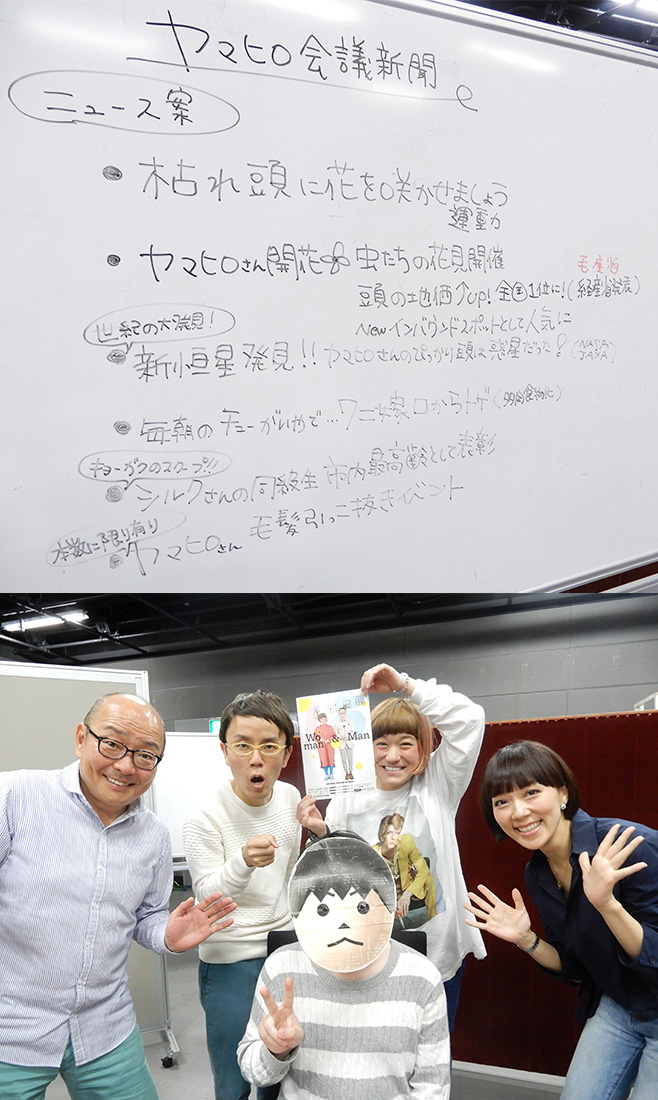 ヤマヒロ会議新聞
ニュース案
● 枯れ頭に花を咲かせましょう
運動
● ヤマヒロさん開花 虫たちの花見開催
毛産省
頭の地価↑up! 全国1位に!(経産省発表)
Newインバウンドスポットとして人気に
世紀の大発見!
● 新小恒星発見!! ヤマヒロさんのぴっかり頭は惑星だった?(NASA JASA)
● 毎朝のチューがいやで…ワニ嫁 口からトゲ(多肉食物化)
キョーガクのスクープ!!
● シルクさんの同級生 市内最高齢として表彰
本数に限り有り
● ヤマヒロさん 毛髪引っこ抜きイベント
Wo
man & Man